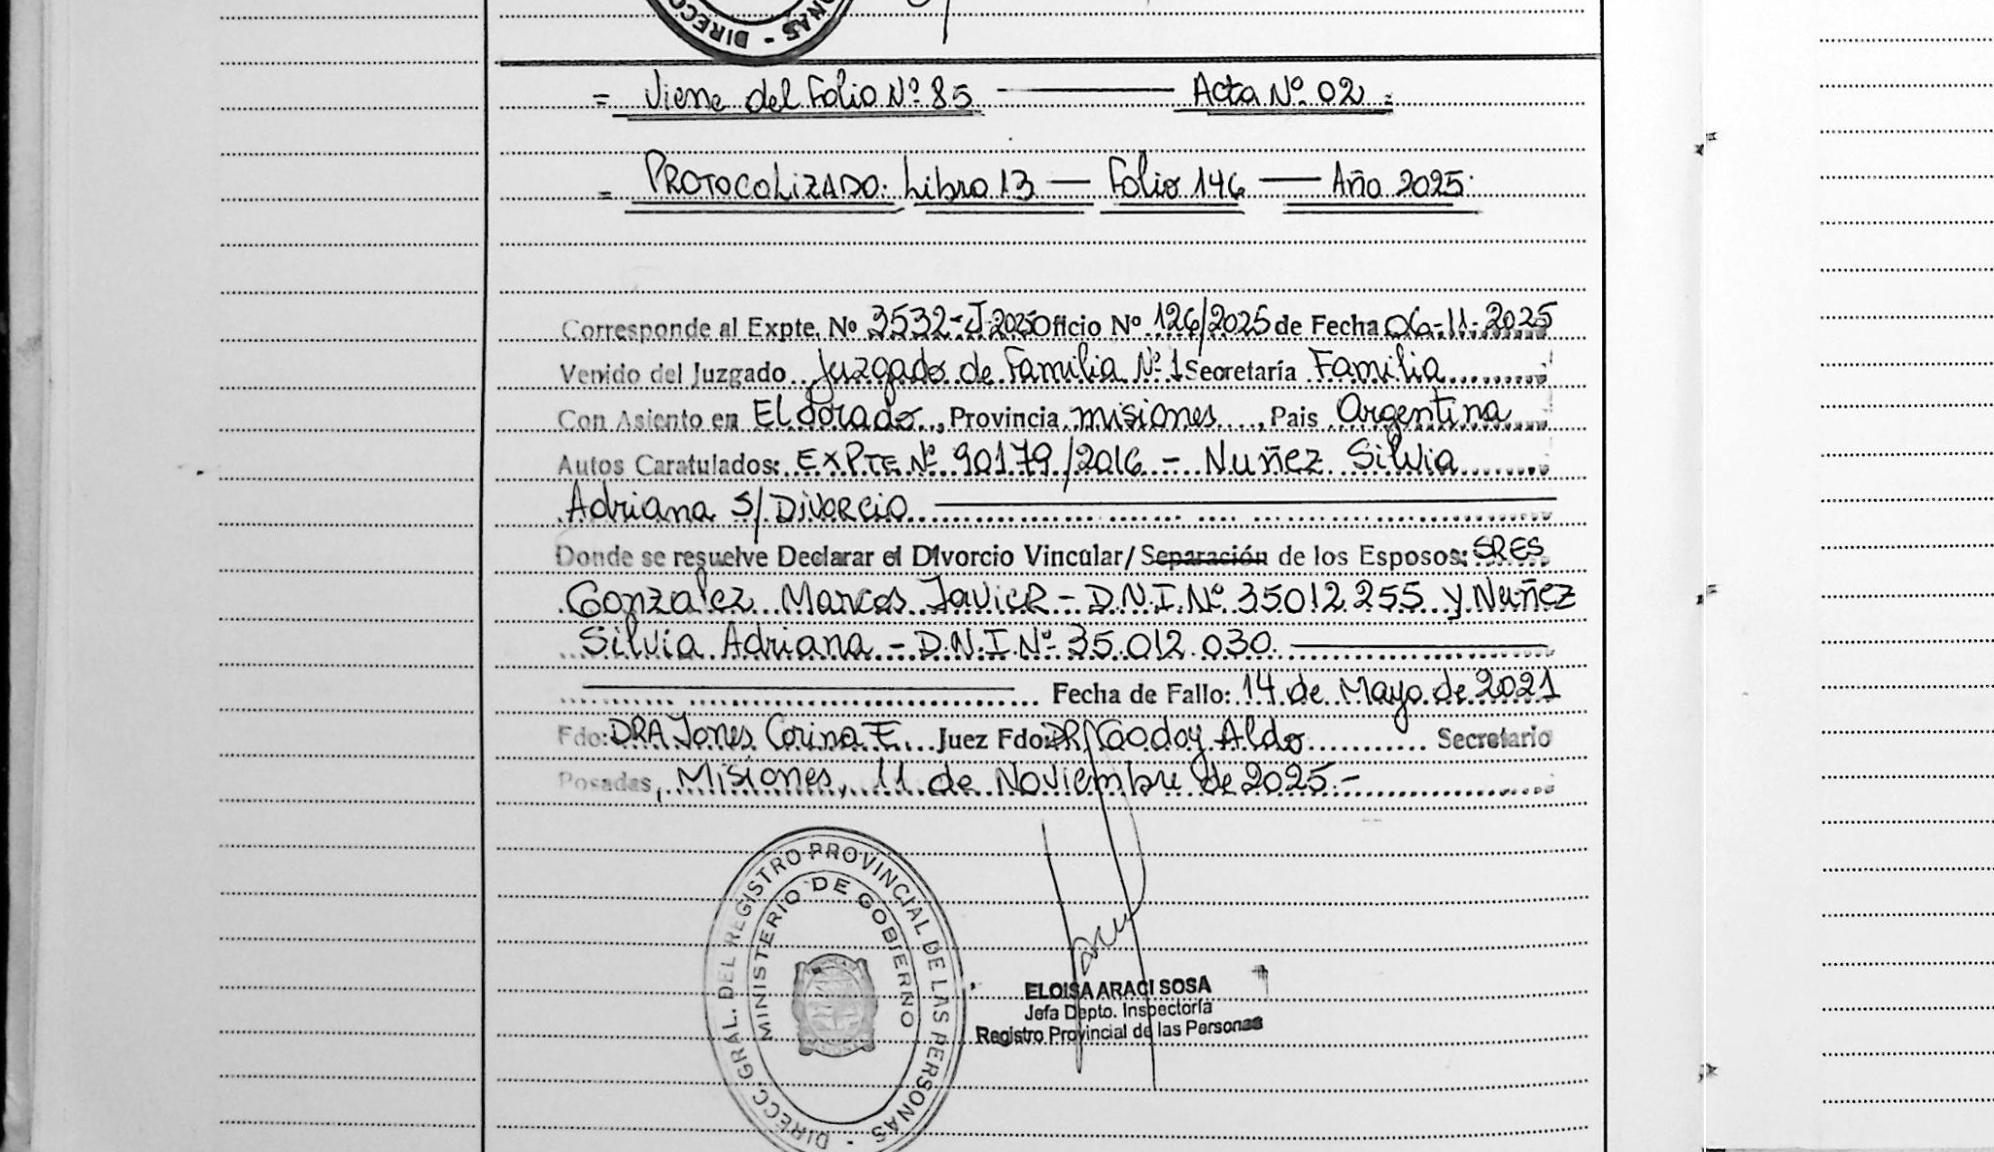 DIRECC
NAS - DIREC
= Viene del Folio Nº 85 ——— Acta Nº 02 =
= PROTOCOLIZADO: Libro 13 — Folio 146 — Año 2025
Corresponde al Expte. Nº 3532-J-2025 Oficio Nº 126/2025 de Fecha 06-11-2025
Venido del Juzgado Juzgado de Familia Nº 1 Secretaría Familia
Con Asiento en Eldorado, Provincia misiones, Pais Argentina
Autos Caratulados: EXPTE Nº 90179/2016 - Nuñez Silvia
Adriana S/ Divorcio
Donde se resuelve Declarar el Divorcio Vincular/ Separación de los Esposos: SRES
González Marcos Javier - D.N.I. Nº 35012255 y Nuñez
Silvia Adriana - D.N.I Nº 35.012.030
Fecha de Fallo: 14 de Mayo de 2021
Fdo: DRA Jones Corina E. Juez Fdo: DR Godoy Aldo Secretario
Posadas, Misiones, 11 de Noviembre de 2025.-
DIRECC. GRAL. DEL REGISTRO PROVINCIAL DE LAS PERSONAS -
MINISTERIO DE GOBIERNO
ELOISA ARACI SOSA
Jefa Depto. Inspectoría
Registro Provincial de las Personas